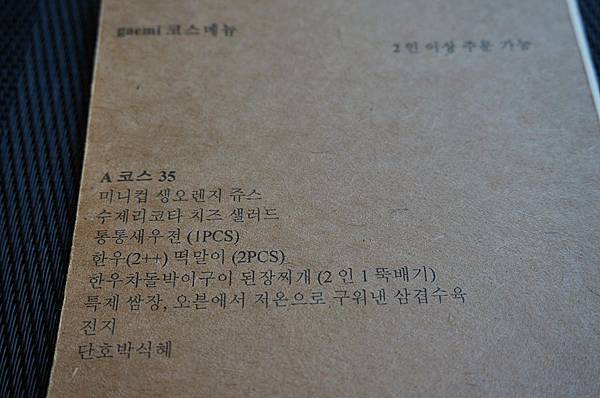 gaemi 코스메뉴
2 인 이상 주문 가능
A 코스 35
미니컵 생오렌지 쥬스
수제리코타 치즈 샐러드
통통새우전 (1PCS)
한우(2++) 떡말이 (2PCS)
한우차돌박이구이 된장찌개 (2 인 1 뚝배기)
특제 쌈장, 오븐에서 저온으로 구워낸 삼겹수육
진지
단호박식혜